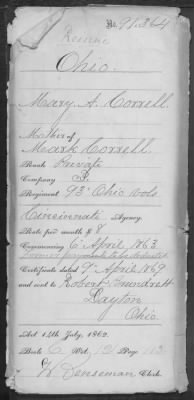 No. 91.364
Ohio.
Mary A. Correll.
Mother of
Mark Correll.
Rank Private
Company
Regiment 93" Ohio Vols
Cincinnati Agency.
Rate per month $8
Commencing 6" April 1863
Certificate dated 9" April 1869
and sent to Robert
Dayton
Ohio.
Act 14th July, 1862.
Book Vol. Page
Clerk.